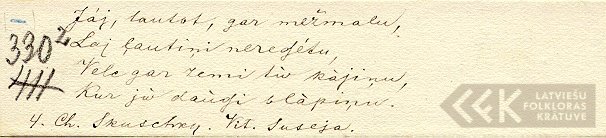 Jáj, tautot, gar mežmalu,
Laj ļautiņi neredźétu,
330²
Velc gar zemi tìv kájiņu,
411
Kur jù daùdzi slàpiņu.
4. Ch. Skuschky. Vit. Suseja.
LATVIEŠU
FOLKLORAS
KRĀTUVE